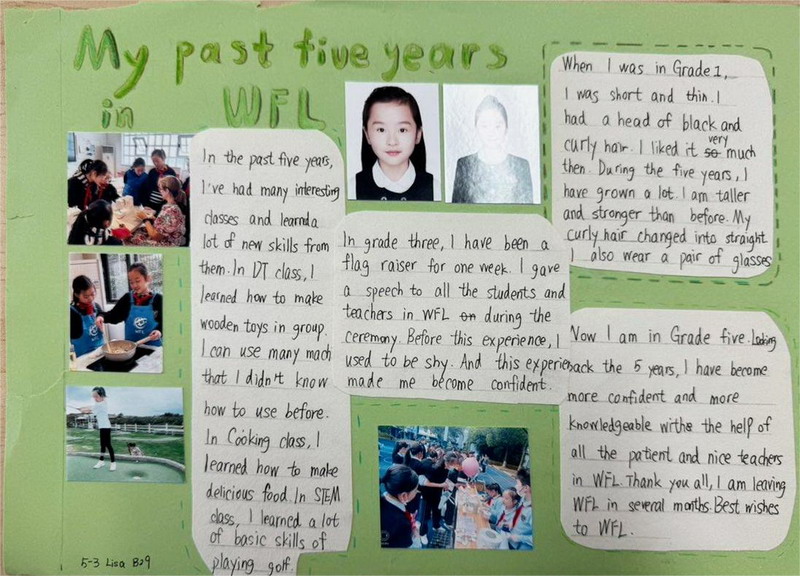 My past five years
in WFL
In the past five years,
I've had many interesting
classes and learnd a
lot of new skills from
them. In DT class, I
learned how to make
wooden toys in group.
I can use many mach
that I didn't know
how to use before.
In Cooking class, I
learned how to make
delicious food. In STEM
class, I learned a lot
of basic skills of
playing golf.
In grade three, I have been a
flag raiser for one week. I gave
a speech to all the students and
teachers in WFL on during the
ceremony. Before this experience, I
used to be shy. And this experien
made me become confident.
When I was in Grade 1,
I was short and thin. I
had a head of black and
curly hair. I liked it so very much
then. During the five years, I
have grown a lot. I am taller
and stronger than before. My
curly hair changed into straight.
I also wear a pair of glasses
Now I am in Grade five. Looking
back the 5 years, I have become
more confident and more
knowledgeable with the help of
all the patient and nice teachers
in WFL. Thank you all, I am leaving
WFL in several months. Best wishes
to WFL.
5-3 Lisa B29